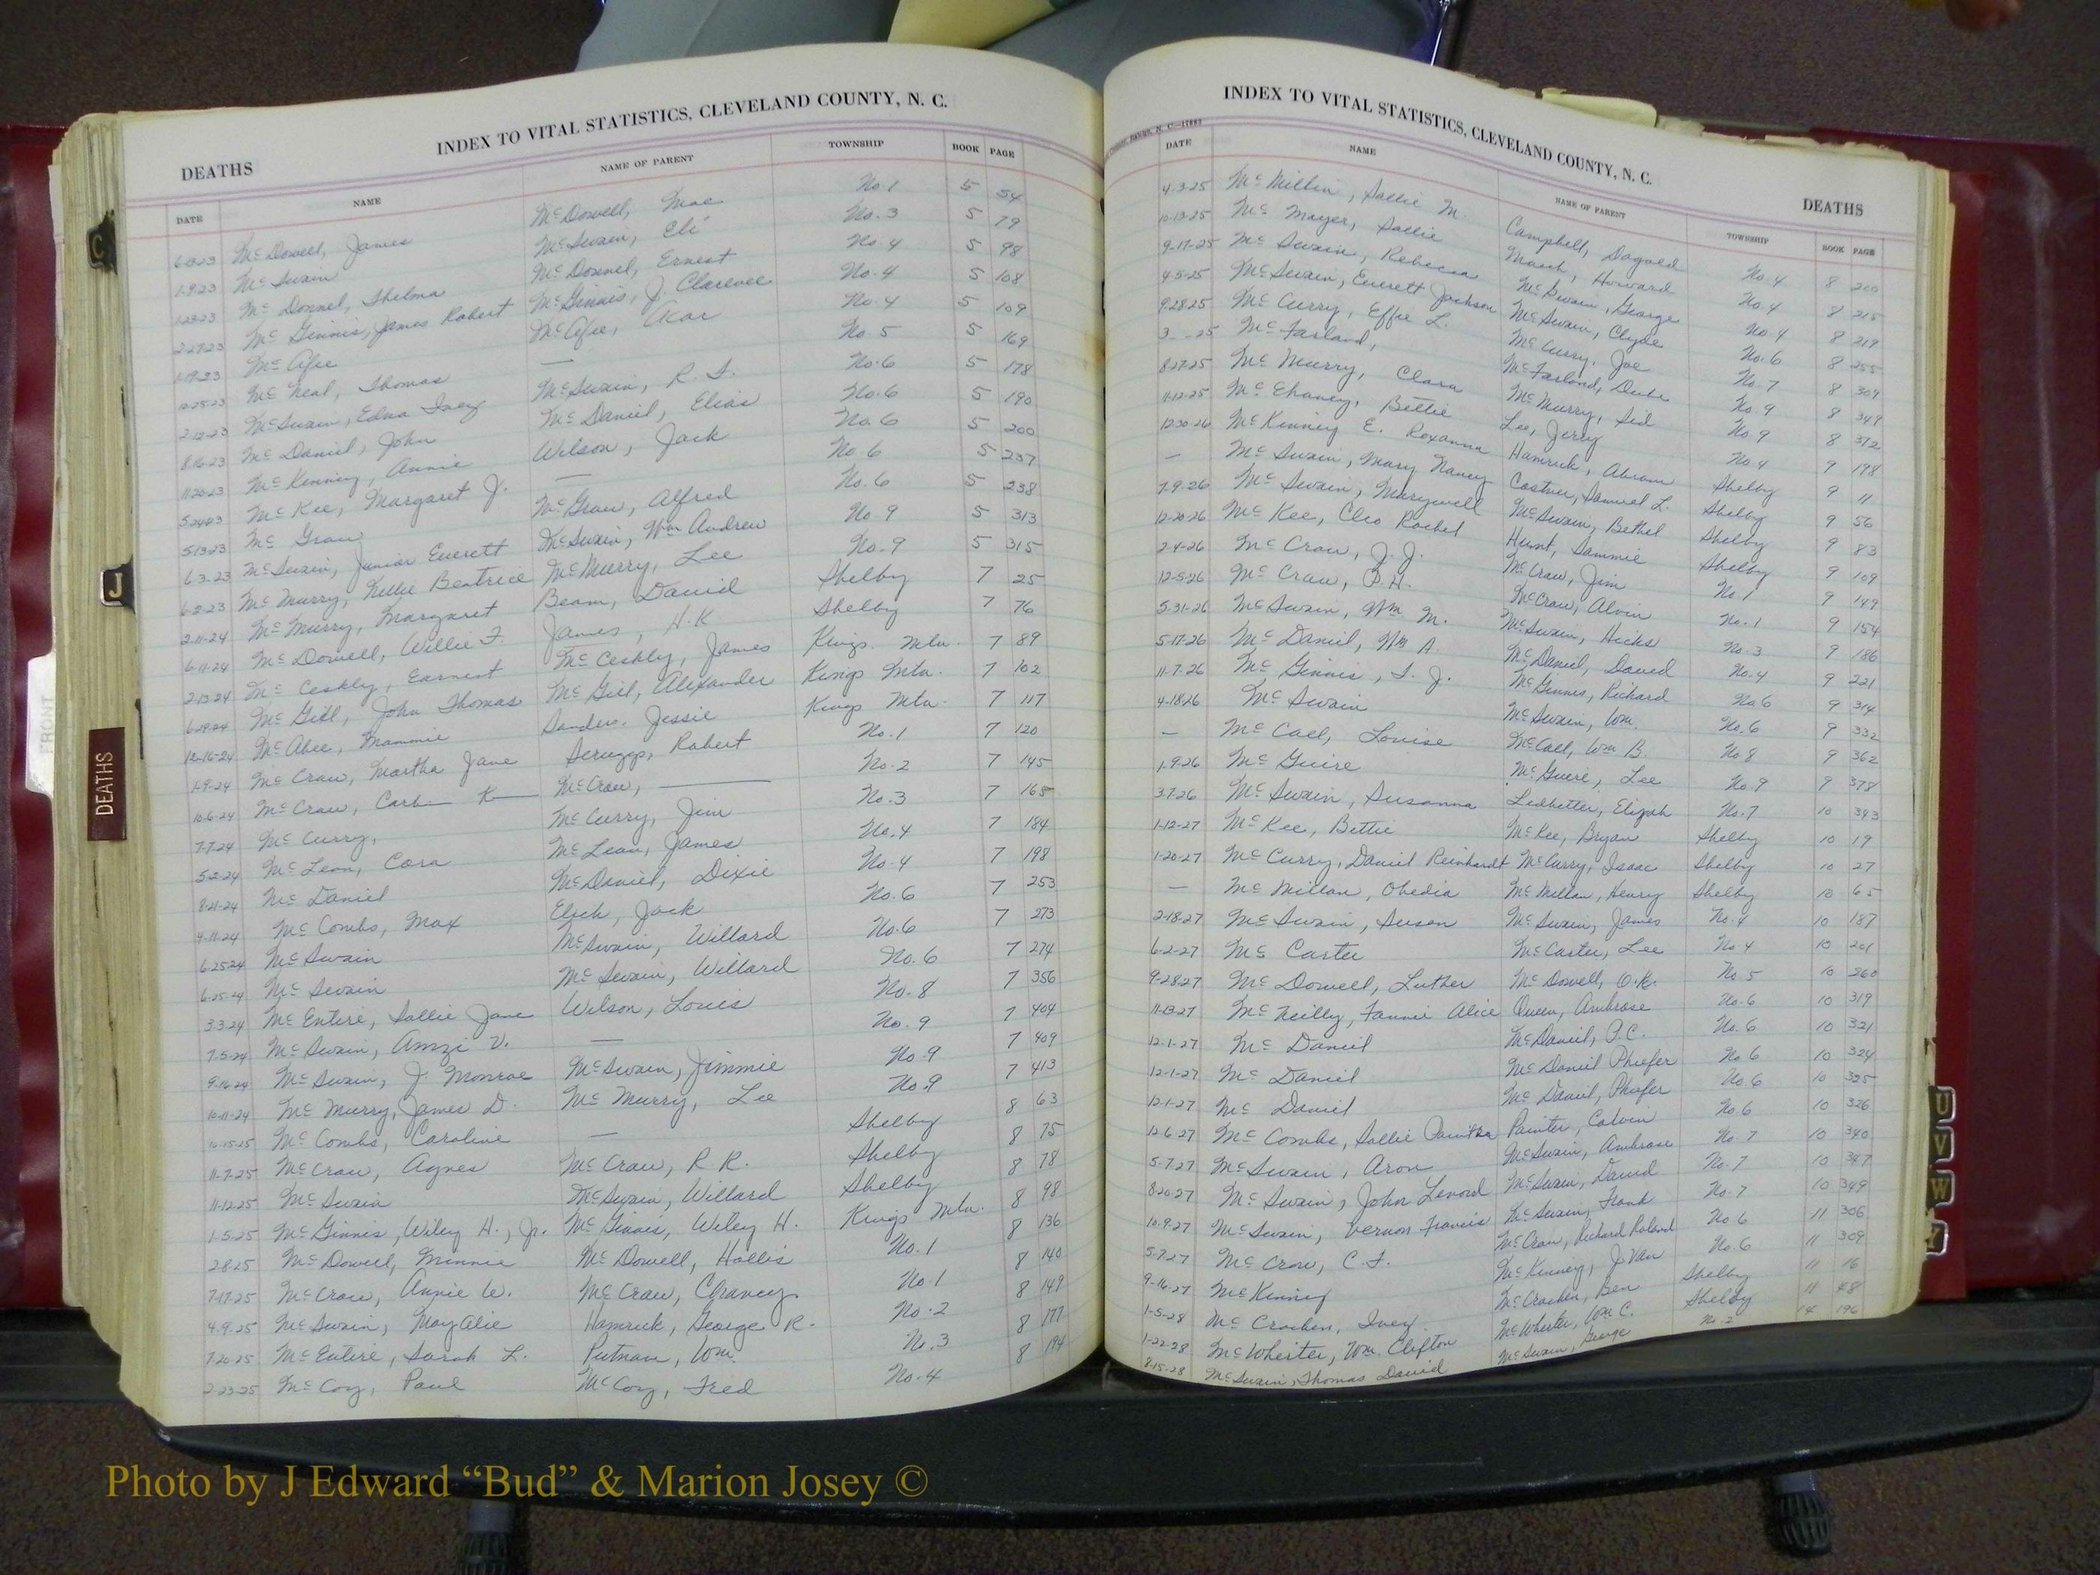 INDEX TO VITAL STATISTICS, CLEVELAND COUNTY, N. C.
DEATHS
DATE NAME NAME OF PARENT TOWNSHIP BOOK PAGE
6-8-23 McDowell, James McDowell, Mae No. 1 5 54
1-9-23 McSwain McSwain, Eli No. 3 5 79
1-23-23 McDonnel, Thelma McDonnel, Ernest No. 4 5 98
2-27-23 McGinnis, James Robert McGinnis, J. Clarence No. 4 5 108
1-19-23 McAfee McAfee, No. 4 5 109
10-25-23 McNeal, Thomas — No. 5 5 169
2-12-23 McSwain, Edna Ivey McSwain, R. S. No. 6 5 178
8-16-23 McDaniel, John McDaniel, Elias No. 6 5 190
11-20-23 McKinney, Annie Wilson, Jack No. 6 5 200
McKee, Margaret J. — No. 6 5 237
5-13-23 McGraw McGraw, Alfred No. 6 5 238
6-3-23 McSwain, Junior Everett McSwain, Wm. Andrew No. 9 5 313
6-2-23 McMurry, Nellie Beatrice McMurry, Lee No. 9 5 315
2-11-24 McMurry, Margaret Beam, David Shelby 7 25
6-11-24 McDowell, Willie F. James, H. K. Shelby 7 76
2-13-24 McCeskly, Earnest McCeskly, James Kings Mtn. 7 89
6-29-24 McGill, John Thomas McGill, Alexander Kings Mtn. 7 102
12-16-24 McAbee, Mammie Sanders, Jessie Kings Mtn. 7 117
1-9-24 McCraw, Martha Jane Scruggs, Robert No. 1 7 120
10-6-24 McCraw, McCraw, — No. 2 7 145
7-7-24 McCurry, McCurry, Jim No. 3 7 165
5-2-24 McLean, Cora McLean, James No. 4 7 184
8-21-24 McDaniel McDaniel, Dixie No. 4 7 198
4-11-24 McCombs, Max Jack No. 6 7 253
6-25-24 McSwain McSwain, Willard No. 6 7 273
6-25-24 McSwain McSwain, Willard No. 6 7 274
3-3-24 McEntire, Sallie Jane Wilson, Louis No. 8 7 356
7-5-24 McSwain, Amzi V. — No. 9 7 404
9-16-24 McSwain, J. Monroe McSwain, Jimmie No. 9 7 409
10-11-24 McMurry, James D. McMurry, Lee No. 9 7 413
10-15-25 McCombs, Caroline — Shelby 8 63
11-7-25 McCraw, Agnes McCraw, R. R. Shelby 8 75
11-12-25 McSwain McSwain, Willard Shelby 8 78
1-5-25 McGinnis, Wiley H., Jr. McGinnis, Wiley H. Kings Mtn. 8 98
2-8-25 McDowell, Minnie McDowell, Hollis No. 1 8 136
7-17-25 McCraw, Annie W. McCraw, Chancy No. 1 8 140
4-9-25 McSwain, May Alie Hamrick, George R. No. 2 8 149
7-20-25 McEntire, Sarah L. Putnam, Wm. No. 3 8 177
2-23-25 McCoy, Paul McCoy, Fred No. 4 8 194
INDEX TO VITAL STATISTICS, CLEVELAND COUNTY, N. C.
DEATHS
DATE NAME NAME OF PARENT TOWNSHIP BOOK PAGE
4-3-25 McMillin, Sallie M. Campbell, No. 4 8 200
10-13-25 McMayer, Sallie Howard No. 4 8 215
9-17-25 McSwain, Rebecca McSwain, George No. 4 8 219
4-5-25 McSwain, Everett Jackson McSwain, Clyde No. 6 8 255
9-28-25 McCurry, Effie L. McCurry, Joe No. 7 8 309
3- -25 McFarland, McFarland, No. 9 8 349
8-27-25 McMurry, Clara McMurry, Sid No. 9 8 372
11-12-25 McEhaney, Bettie Lee, Jerry No. 4 9 198
12-30-26 McKinney E. Roxanna Hamrick, Abram Shelby 9 11
— McSwain, Mary Nancy Costner, Samuel L. Shelby 9 56
7-9-26 McSwain, Marywell McSwain, Bethel Shelby 9 83
12-20-26 McKee, Cleo Rachel Hunt, Sammie Shelby 9 109
2-4-26 McCraw, J. J. McCraw, Jim No. 1 9 149
12-5-26 McCraw, P. H. McCraw, Alvin No. 1 9 154
5-31-26 McSwain, Wm. M. McSwain, Hicks No. 3 9 186
5-17-26 McDaniel, Wm A. McDaniel, David No. 4 9 221
11-7-26 McGinnis, S. J. McGinnis, Richard No. 6 9 314
4-18-26 McSwain McSwain, Wm. No. 6 9 332
— McCall, Louise McCall, Wm B. No. 8 9 362
1-9-26 McGuire McGuire, Lee No. 9 9 378
3-7-26 McSwain, Susanna Ledbetter, Elijah No. 7 10 343
1-12-27 McKee, Bettie McKee, Bryan Shelby 10 19
1-20-27 McCurry, Daniel Reinhardt McCurry, Isaac Shelby 10 27
— McMillan, Obedia McMillan, Henry Shelby 10 65
2-18-27 McSwain, Susan McSwain, James No. 4 10 187
6-2-27 McCarter McCarter, Lee No. 4 10 201
9-28-27 McDowell, Luther McDowell, O. K. No. 5 10 260
11-13-27 McNeilly, Fannie Alice Queen, Ambrose No. 6 10 319
12-1-27 McDaniel McDaniel, P. C. No. 6 10 321
12-1-27 McDaniel McDaniel Phiefer No. 6 10 324
12-1-27 McDaniel McDaniel, Phiefer No. 6 10 325
12-6-27 McCombs, Sallie Painter, Calvin No. 6 10 326
5-7-27 McSwain, Aron McSwain, Ambrose No. 7 10 340
8-20-27 McSwain, John Lenord McSwain, David No. 7 10 347
10-9-27 McSwain, Vernon Francis McSwain, Frank No. 7 10 349
5-7-27 McCraw, C. F. McCraw, Richard Roland No. 6 11 306
9-16-27 McKinney McKinney, J. Van No. 6 11 309
1-5-28 McCracken, Ivey McCracken, Ben Shelby 11 16
1-22-28 McWherter, Wm. Clifton McWherter, Wm C. Shelby 11 48
8-15-28 McSwain, Thomas David McSwain, George No. 2 14 196
C
J
DEATHS
FRONT
U
V
W
Photo by J Edward “Bud” & Marion Josey ©